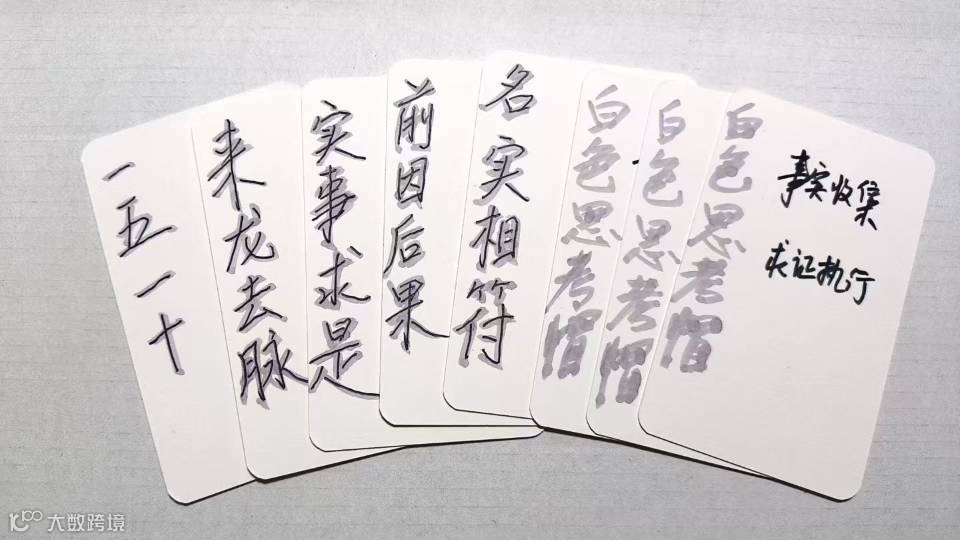 一五一十
来龙去脉
实事求是
前因后果
名实相符
白色思考帽
白色思考帽
白色思考帽
事实收集
求证执行
大数跨境